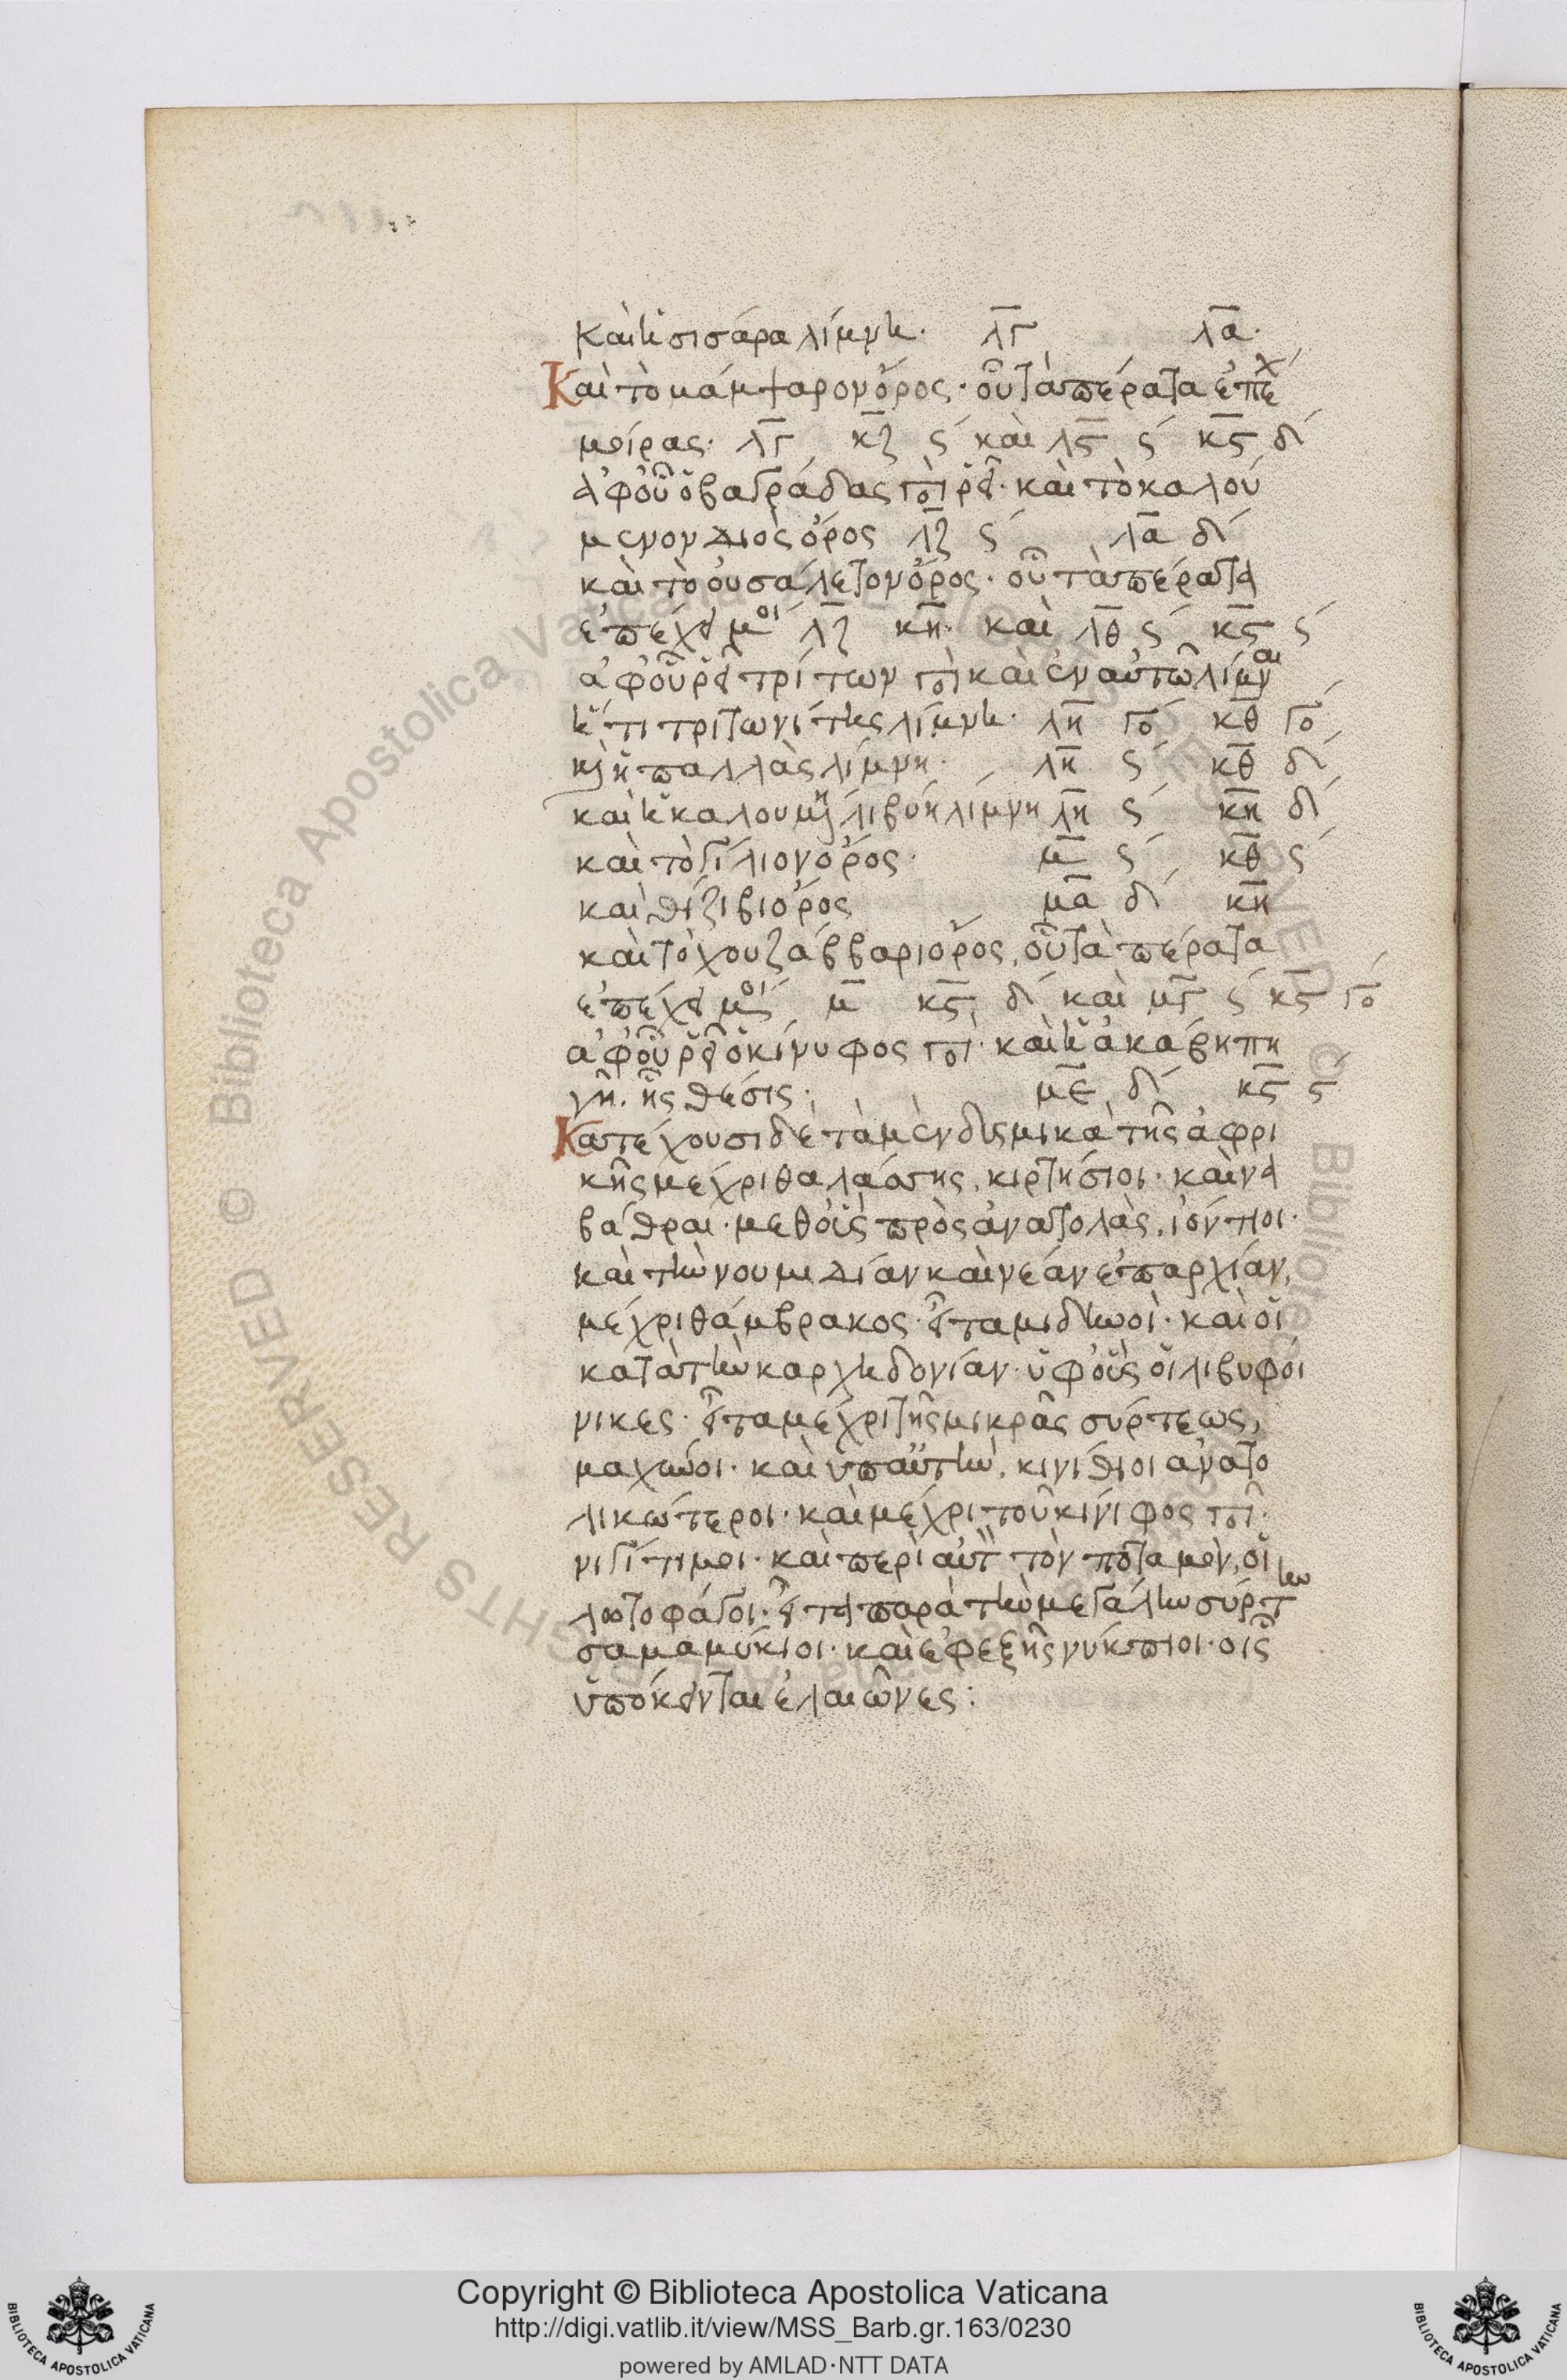 καὶ ἡ σισάρα λίμνη· λ̅γ̅ λ̅α̅·
Καὶ τὸ μάμψαρον ὄρος· οὗ τὰ πέρατα ἐπέχ
μοίρας· λ̅γ̅ κ̅ζ̅ ϛ´ καὶ λ̅ϛ̅ ϛ´ κ̅ϛ̅ δ´
ἀφ' οὗ ὁ βαγράδας πο ῥεῖ· καὶ τὸ καλού
μενον διὸς ὄρος λ̅ζ̅ ϛ´ λ̅α̅ δ´
καὶ τὸ οὐσάλετον ὄρος· οὗ τὰ πέρατα
ἐπέχει μοι λ̅ζ̅ κ̅η̅· καὶ λ̅θ̅ ϛ´ κ̅ϛ̅ ϛ´
ἀφ' οὗ ῥεῖ τρίτων πο καὶ ἐν αὐτῷ λίμναι
ἥτι τριτωνίτης λίμνη· λ̅η̅ γο´ κ̅θ̅ γο´
κὶ ἡ παλλὰς λίμνη· λ̅η̅ ϛ´ κ̅θ̅ δ´
καὶ ἡ καλουμένη λιβύη λίμνη λ̅η̅ ϛ´ κ̅η̅ δ´
καὶ τὸ γίλιον ὄρος· μ̅ ϛ´ κ̅θ̅ ϛ´
καὶ θίζιβι ὄρος μ̅α̅ δ´ κ̅η̅
καὶ τὸ χουζάββαρι ὄρος, οὗ τὰ πέρατα
ἐπέχει μοι μ̅ κ̅ϛ̅ δ´ καὶ μ̅γ̅ ϛ´ κ̅ϛ̅ γο´
ἀφ' οὗ ῥεῖ ὁ κίνυφος πο· καὶ ἡ ἀκάβη πη
γή· ἧς θέσις· μ̅ε̅ δ´ κ̅ϛ̅ ϛ´
Κατέχουσι δὲ τὰ μὲν δυσμικὰ τῆς ἀφρι
κῆς μέχρι θαλάσσης, κιρτήσιοι· καὶ να
βάθραι· μεθ' οὓς πρὸς ἀνατολὰς, ἰόντιοι·
καὶ τὴν νουμιδίαν καὶ νέαν ἐπαρχίαν,
μέχρι θάμβρακος· εἶτα μιδηνοὶ· καὶ οἱ
κατὰ τὴν καρχηδονίαν· ὑφ' οὓς οἱ λιβυφοί
νικες· εἶτα μέχρι τῆς μικρᾶς σύρτεως,
μαχῦνοι· καὶ ὑπ' αὐτὴν, κινίθιοι ἀνατο
λικώτεροι· καὶ μέχρι τοῦ κίνιφος πο·
νιγίτιμοι· καὶ περὶ αὐτ τὸν ποταμὸν, οἱ
λωτοφάγοι· εἶτα παρὰ τὴν μεγάλην σύρτην
σαμαμύκιοι· καὶ ἐφεξῆς νύκπιοι· οἷς
ὑπόκεινται ἐλαιῶνες:
Copyright © Biblioteca Apostolica Vaticana
http://digi.vatlib.it/view/MSS_Barb.gr.163/0230
powered by AMLAD·NTT DATA